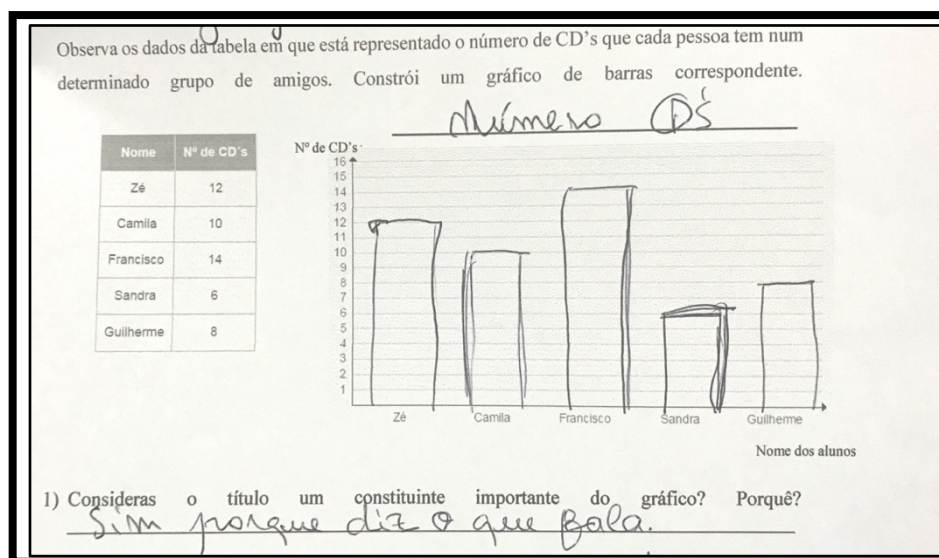 Observa os dados da tabela em que está representado o número de CD's que cada pessoa tem num
determinado grupo de amigos. Constrói um gráfico de barras correspondente.
Número CD's
Nome Nº de CD's
Zé 12
Camila 10
Francisco 14
Sandra 6
Guilherme 8
Nº de CD's
16
15
14
13
12
11
10
9
8
7
6
5
4
3
2
1
Zé Camila Francisco Sandra Guilherme
Nome dos alunos
1) Consideras o título um constituinte importante do gráfico? Porquê?
Sim porque diz o que fala.